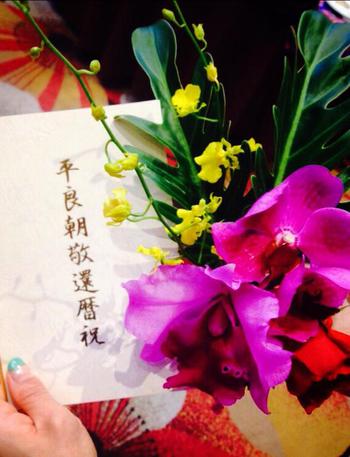 平良朝敬還暦祝